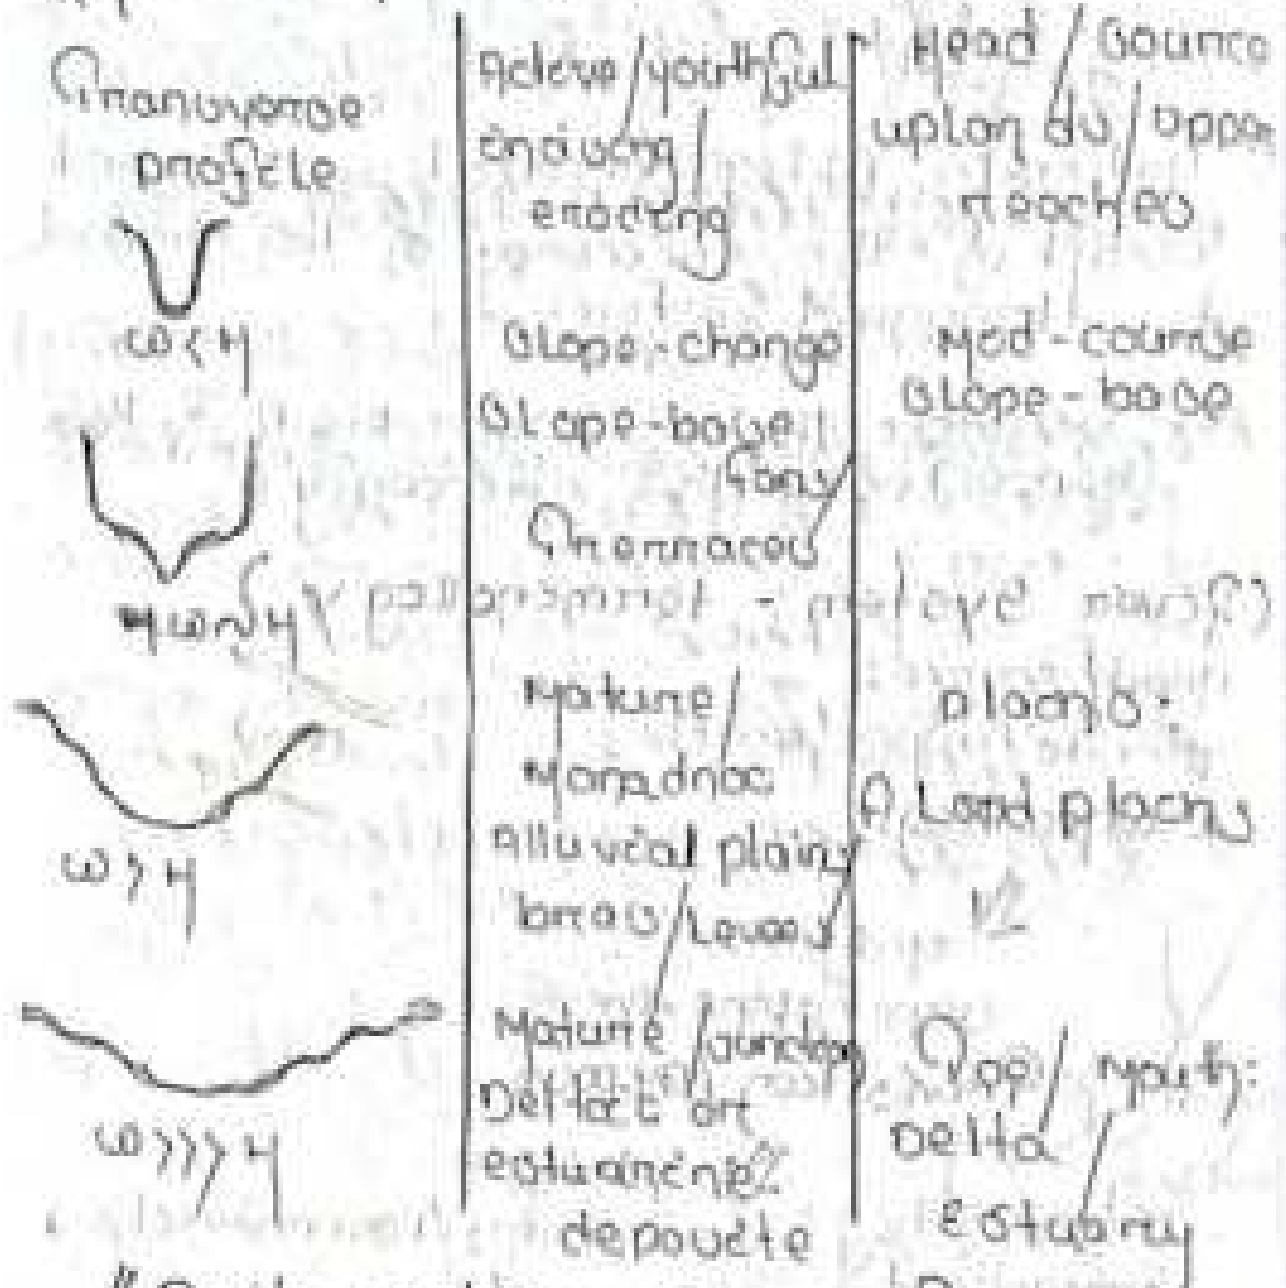 Transverse
profile
w < H
w ~ H
w > H
w >>> H
Active / youthful
incising /
eroding
Slope-change
Slope-base
fans /
Terraces
Mature /
Monadnoc
Alluvial plains
bras / Levees /
Mature /
Deltaic or
estuarine
deposite
Head / Source
uplands / upper
reaches
Mid-course
Slope-base
plains:
Land plains
Toe / Mouth:
Delta /
Estuary